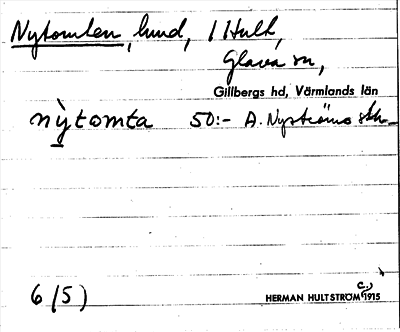 Nytomten, lund, 1 Hult,
Glava sn,
Gillbergs hd, Värmlands län
nỳtomta 50:- A. Nyströms
6 (5)
HERMAN HULTSTRÖM 1915